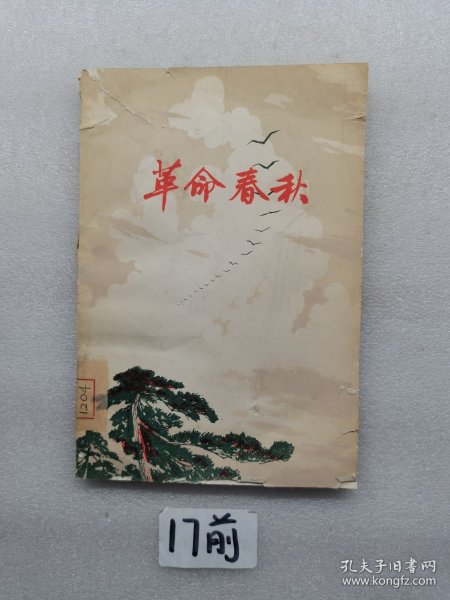 革命春秋
1204
17前
孔夫子旧书网
www.kongfz.com